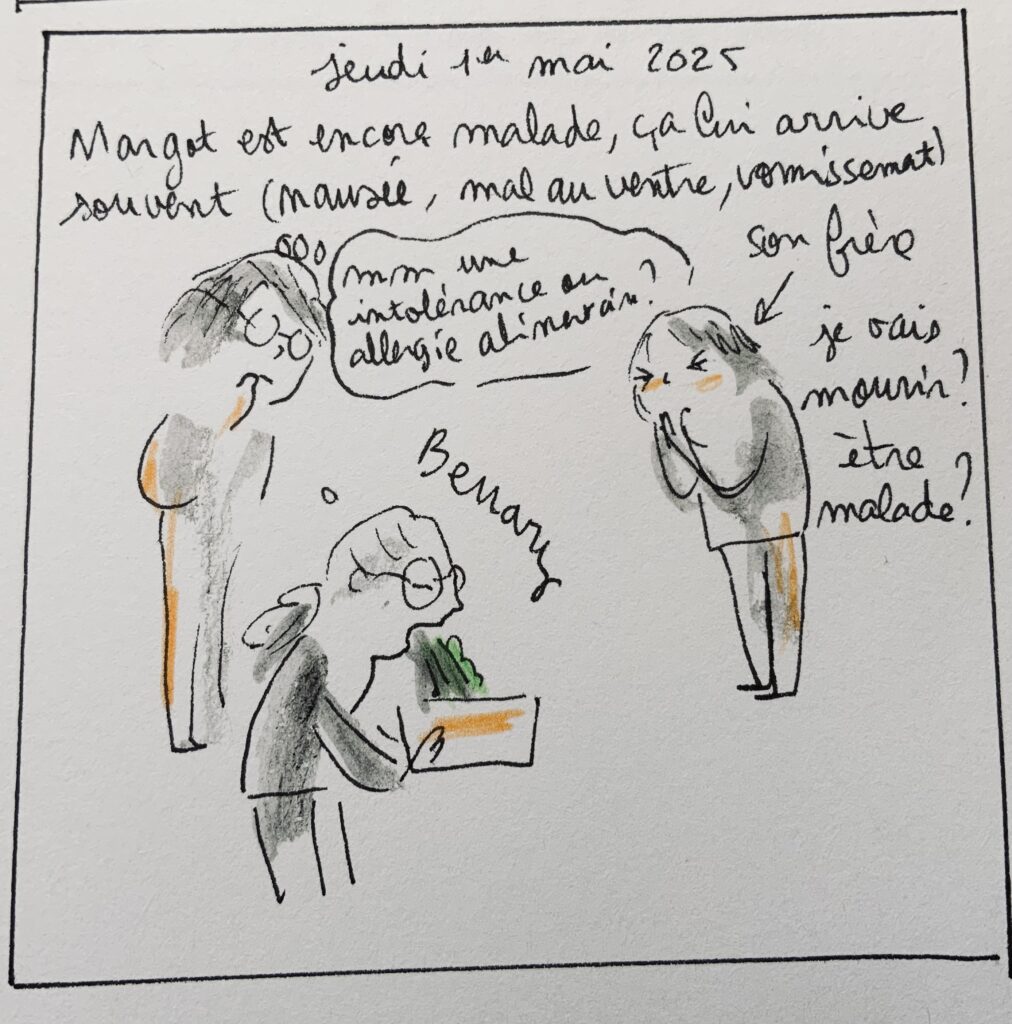 jeudi 1er mai 2025
Margot est encore malade, ça lui arrive
souvent (nausée, mal au ventre, vomissemat)
son frère
mm une
intolérance ou
allergie alimentaire?
je vais
mourir?
être
malade?